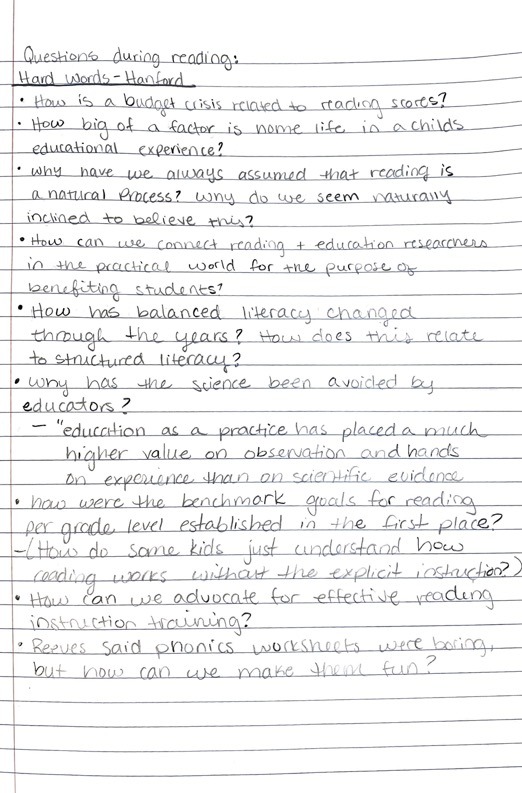 Questions during reading:
Hard Words-Hanford
• How is a budget crisis related to reading scores?
• How big of a factor is home life in a childs
educational experience?
• why have we always assumed that reading is
a natural process? Why do we seem naturally
inclined to believe this?
• How can we connect reading + education researchers
in the practical world for the purpose of
benefiting students?
• How has balanced literacy changed
through the years? How does this relate
to structured literacy?
• why has the science been avoided by
educators?
– "education as a practice has placed a much
higher value on observation and hands
on experience than on scientific evidence
• how were the benchmark goals for reading
per grade level established in the first place?
–(How do some kids just understand how
reading works without the explicit instruction?)
• How can we advocate for effective reading
instruction training?
• Reeves said phonics worksheets were boring,
but how can we make them fun?